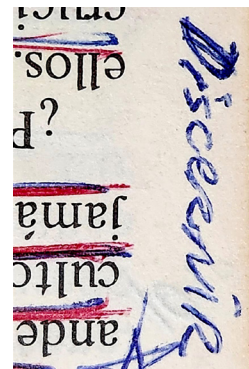 ande
culto
jamá
¿P
ellos.
cruci
DiscerNIR